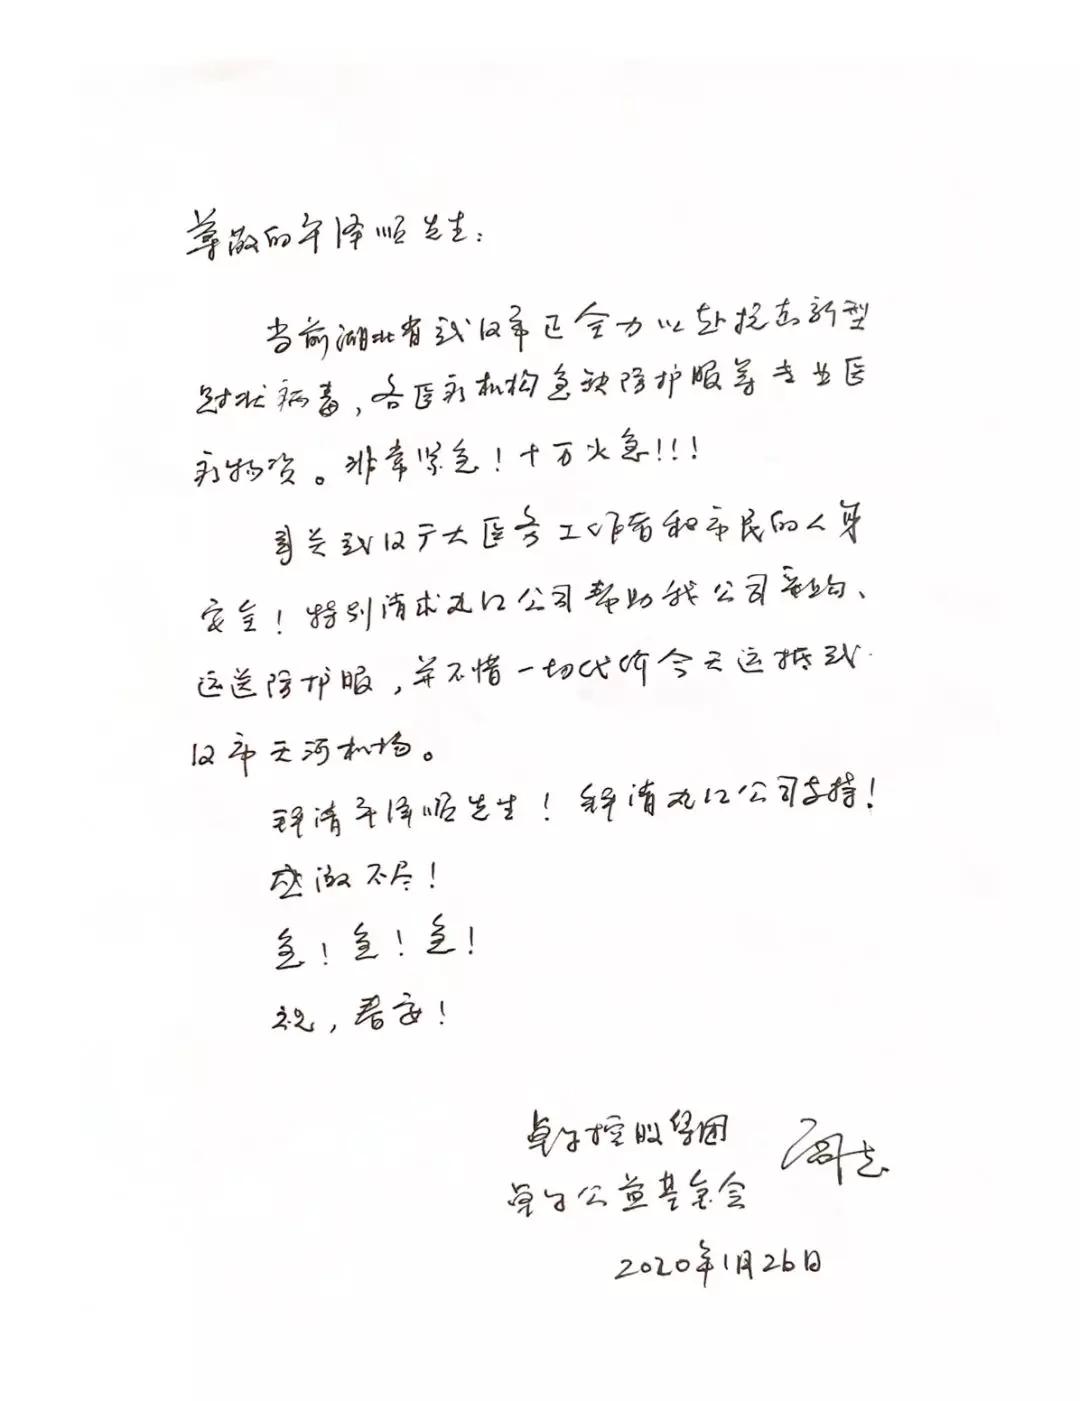 尊敬的平泽顺先生：
当前湖北省武汉市正全力以赴抗击新型
冠状病毒，各医疗机构急缺防护服等专业医
疗物资。非常紧急！十万火急！！！
事关武汉广大医务工作者和市民的人身
安全！特别请求丸红公司帮助我公司采购、
运送防护服，并不惜一切代价今天运抵武
汉市天河机场。
拜请平泽顺先生！拜请丸红公司支持！
感激不尽！
急！急！急！
祝，春安！
卓尔控股集团
卓尔公益基金会
2020年1月26日